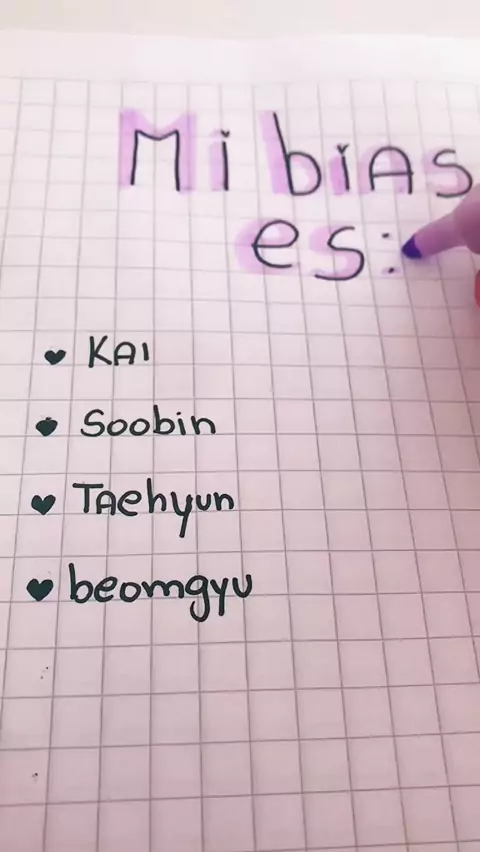 Mi bias
es:
♥ KAI
♥ Soobin
♥ TAehyun
♥ beomgyu